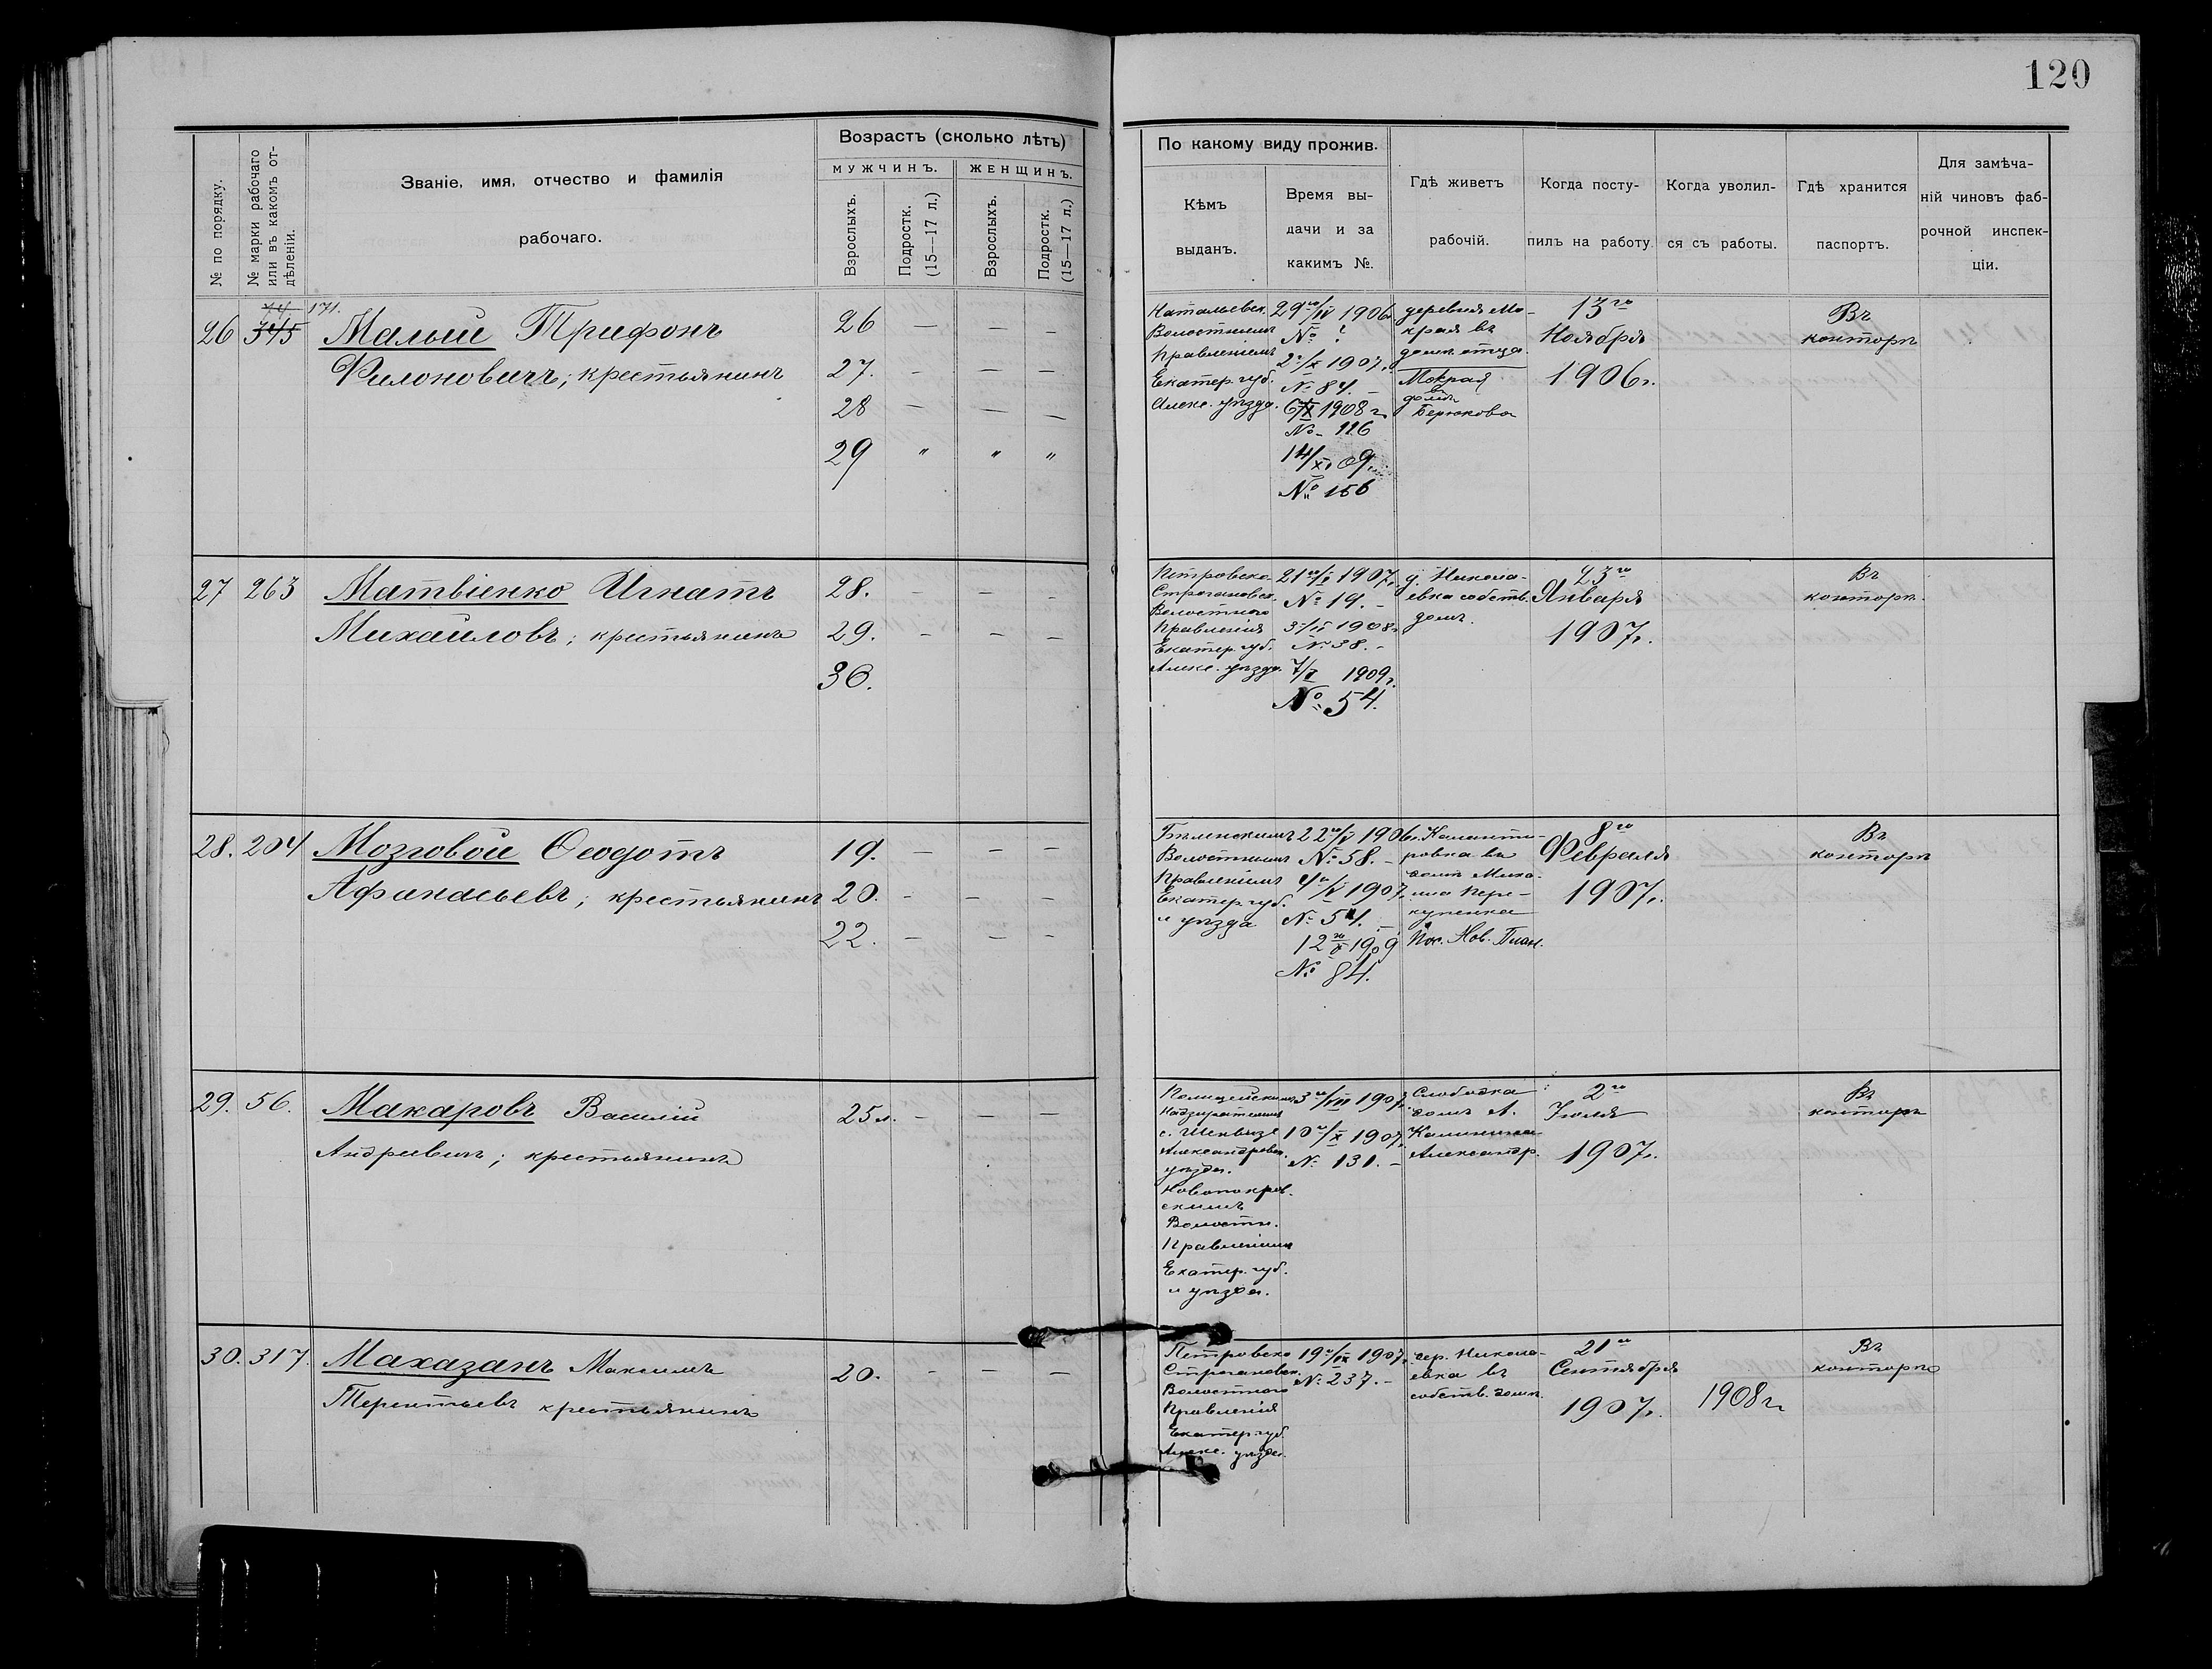 120
Возрастъ (сколько лѣтъ)
мужчинъ.
женщинъ.
№ по порядку.
№ марки рабочаго
или въ какомъ от-
дѣленіи.
Званіе, имя, отчество и фамилія
рабочаго.
Взрослыхъ.
Подростк.
(15—17 л.)
Взрослыхъ.
Подростк.
(15—17 л.)
По какому виду прожив.
Кѣмъ
выданъ.
Время вы-
дачи и за
какимъ №.
Гдѣ живетъ
рабочій.
Когда посту-
пилъ на работу.
Когда уволил-
ся съ работы.
Гдѣ хранится
паспортъ.
Для замѣча-
ній чиновъ фаб-
рочной инспек-
ціи.
171.
26 345 Малый Трифонъ
Филоновичъ; крестьянинъ
26 — — —
27. — — —
28 — — —
29 " " "
Натальевск.
Волостнымъ
Правленіемъ
Екатер. губ.
Алекс. уѣзда.
29го/IV 1906г
№ ?
2го/X 1907г.
№ 84. –
6/X 1908 г.
№ 126
14/XI 09г.
№ 156
деревня Мо-
края въ
домѣ отца.
Мокрая
домъ
Бирюкова
13го
Ноября
1906г.
Въ
конторѣ
27 263 Матвіенко Игнатъ
Михайловъ; крестьянинъ
28. — — —
29. — — —
30.
Петровско-
Строгановск.
Волостного
Правленія
Екатер. губ.
Алекс. уѣзда.
1907г.
№ 19. –
1908г
№ 38. –
1909г.
№ 54.
д. Никола-
евка собств.
домъ.
23го
Января
1907г.
Въ
конторѣ.
28. 204 Мозговой Ѳеодотъ
Афанасьевъ; крестьянинъ
19. — — —
20. — — —
22. — — —
Бѣленскимъ
Волостнымъ
Правленіемъ
Екатер. губ.
и уѣзда
1906г.
№ 58. –
1907г.
№ 54. –
1909
№ 84.
Каланти-
ровка въ
домѣ Миха-
ила Пере-
купенка
Пос. Нов. План.
8го
Февраля
1907г.
Въ
конторѣ
29. 56. Макаровъ Василій
Андреевичъ; крестьянинъ
25 л. — — —
Полицейскимъ
Надзирателемъ
с. Шенвизе
Александровск.
уѣзда.
Новопокров.
скимъ
Волости.
Правленіемъ
Екатер. губ.
и уѣзда.
3го/VIII 1907г.
10го/X 1907г.
№ 131. –
Слободка
домъ А.
Калинина
Александр.
2го
Іюля
1907г.
Въ
конторѣ
30. 317. Махазанъ Максимъ
Терентьевъ крестьянинъ
20. — — —
Петровско
Строгановск.
Волостного
Правленія
Екатер. губ.
Алекс. уѣзда.
19го/IX 1907г.
№ 237. –
дер. Никола-
евка въ
собств. домѣ.
21го
Сентября
1907г.
1908 г.
Въ
конторѣ